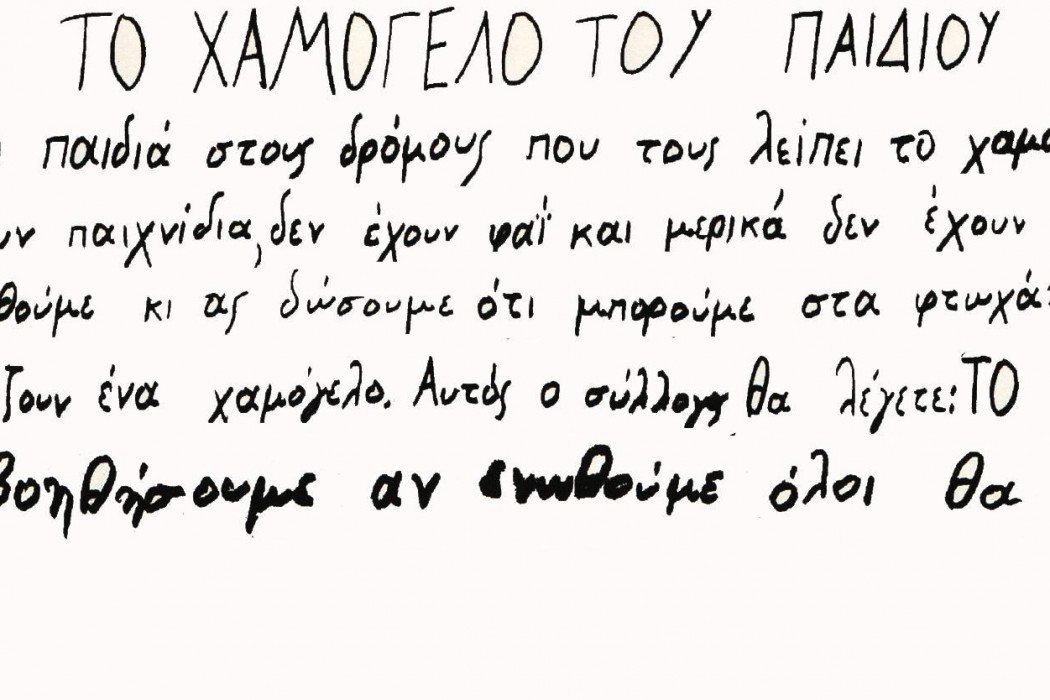 ΤΟ ΧΑΜΟΓΕΛΟ ΤΟΥ ΠΑΙΔΙΟΥ
παιδιά στους δρόμους που τους λείπει το χαμο
υν παιχνίδια, δεν έχουν φαΐ και μερικά δεν έχουν
θούμε κι ας δώσουμε ότι μπορούμε στα φτωχά
ζουν ένα χαμόγελο. Αυτός ο σύλλογος θα λέγετε: ΤΟ
βοηθήσουμε αν ενωθούμε όλοι θα